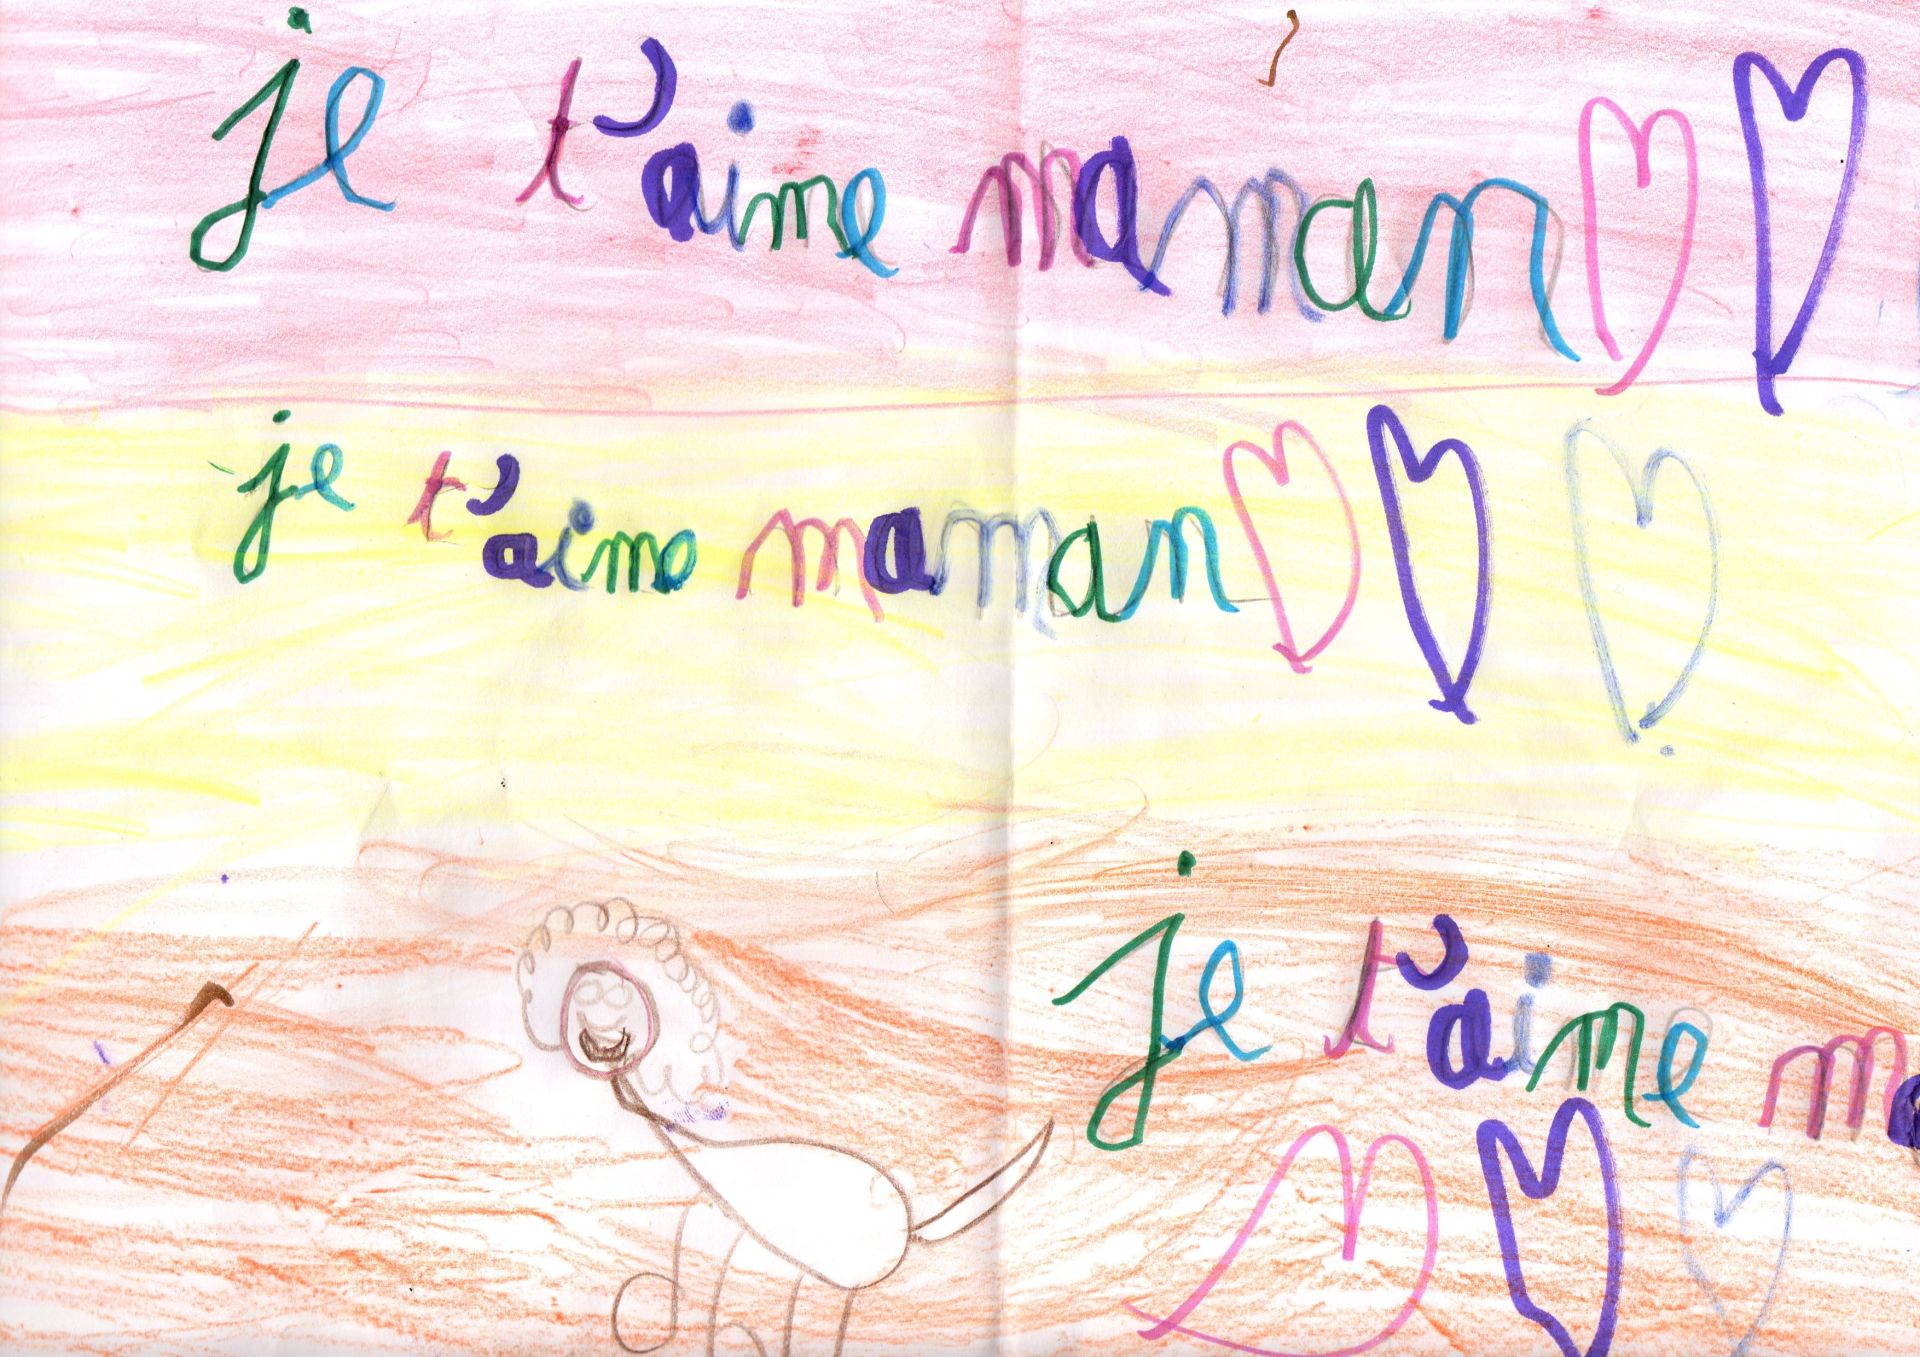 je t'aime maman
je t'aime maman
je t'aime ma